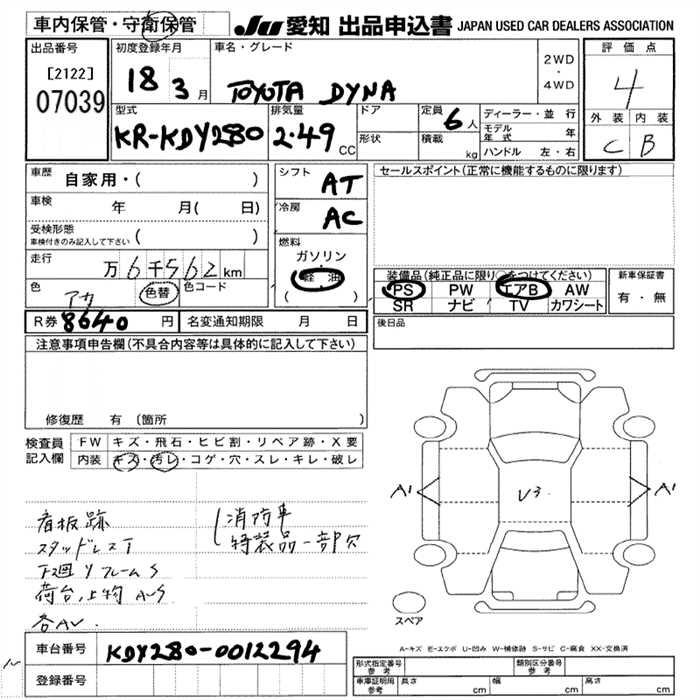 車内保管・守衛保管
JU 愛知 出品申込書 JAPAN USED CAR DEALERS ASSOCIATION
出品番号
[2122]
07039
初度登録年月
18 3月
車名・グレード
TOYOTA DYNA
2WD
・
4WD
評価点
4
外装 内装
C B
型式
KR-KDY280
排気量
2.49 CC
ドア
形状
定員 6人
積載 kg
ディーラー・並行
モデル年式 年
ハンドル 左・右
車歴 自家用・( )
車検 年 月(日)
受検形態
車検付きのみ記入して下さい ( )
走行 万6千562km
色 アカ 色替 色コード
シフト AT
冷房 AC
燃料
ガソリン
軽油
( )
セールスポイント(正常に機能するものに限ります)
装備品(純正品に限り○をつけてください)
PS PW エアB AW
SR ナビ TV カワシート
新車保証書
有・無
R券 8640円 名変通知期限 月 日
後日品
注意事項申告欄(不具合内容等は具体的に記入して下さい)
修復歴 有 〔箇所 〕
検査員記入欄
FW キズ・飛石・ヒビ割・リペア跡・X要
内装 キズ・汚レ・コゲ・穴・スレ・キレ・破レ
看板跡
スタッドレスT
下廻リフレームS
荷台,上物AUS
各AU.
消防車
特装品一部欠
A1
V3
A1
スペア
A-キズ E-エクボ U-凹み W-補修跡 S-サビ C-腐食 XX-交換済
車台番号 KDY280-0012294
登録番号
形式指定番号
参考
類別区分番号
参考
車庫証明用
参考
長さ cm 幅 cm 高さ cm